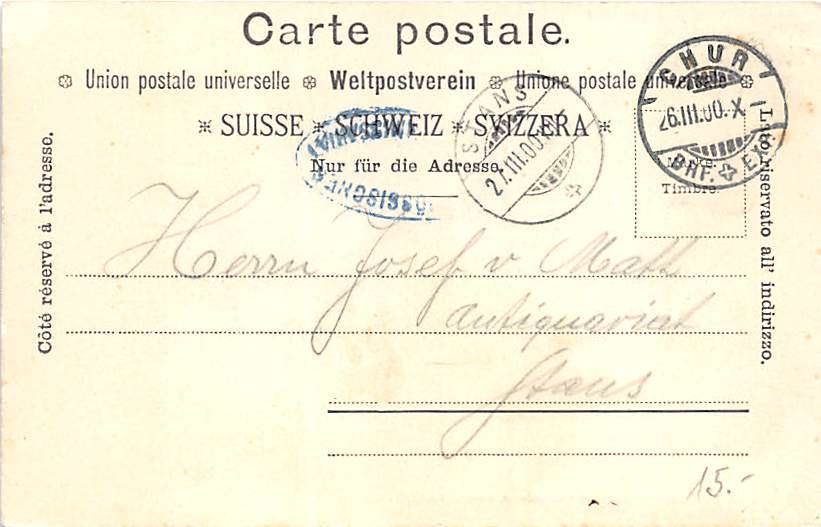 Carte postale.
Union postale universelle Weltpostverein Unione postale universale
SUISSE SCHWEIZ SVIZZERA
Nur für die Adresse.
Côté réservé à l'adresse.
Lato riservato all' indirizzo.
Timbre.
CHUR
26.III.00.X
BHF. EXP.
STANS
27.III.00.
Herrn Josef v Matt
Antiquariat
Stans
15.-